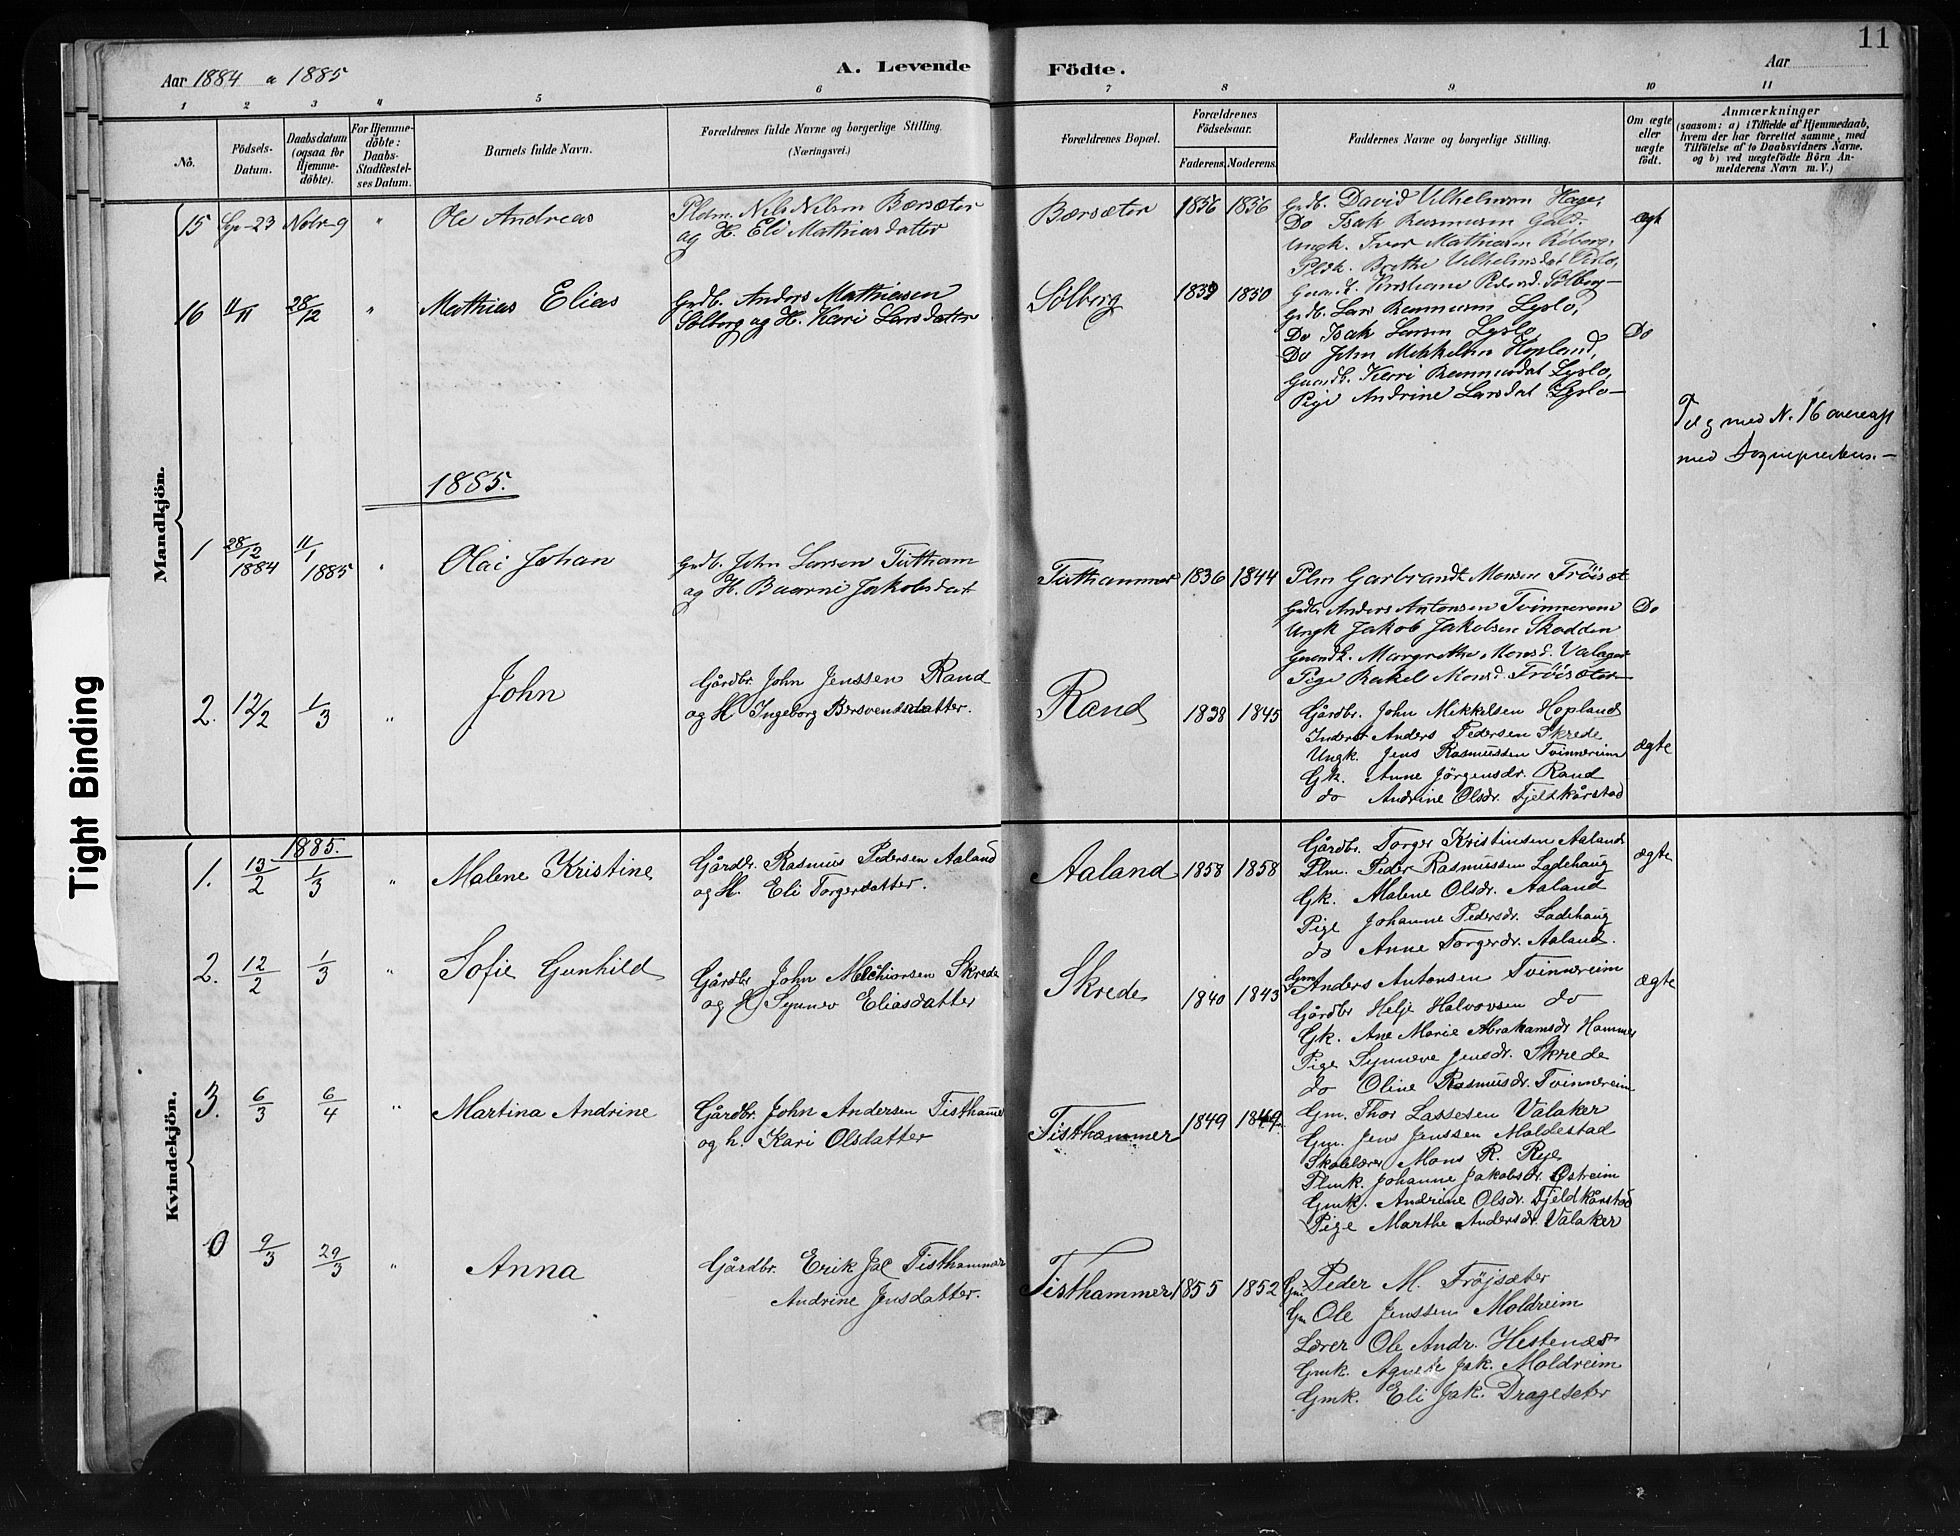 11
Aar 1884 & 1885 A. Levende Födte. Aar
1 2 3 4 5 6 7 8 9 10 11
No.
Födsels-Datum.
Daabsdatum (ogsaa for Hjemme-döbte).
For Hjemme-döbte: Daabs-Stadfæstel-ses Datum.
Barnets fulde Navn.
Forældrenes fulde Navne og borgerlige Stilling.
(Næringsvei.)
Forældrenes Bopæl.
Forældrenes Födselsaar.
Faderens. Moderens.
Faddernes Navne og borgerlige Stilling.
Om ægte eller uægte födt.
Anmærkninger
(saasom: a) i Tilfælde af Hjemmedaab,
hvem der har forrettet samme, med
Tilföielse af to Daabsvidners Navne,
og b) ved uægtefödte Börn An-
melderens Navn m. V.)
Mandkjön.
15 Sep-23 Novbr-9 " Ole Andreas
Pldm. Nils Nilsen Bærsæter
og H. Eli Mathiasdatter
Bærsæter 1836 1836
Grdb. David Vilhelmsen Hage,
Do Isak Rasmusen
Ungk. Iver Mathiasen
Pldk. Brethe Vilhelmsdat
ægt
16 11/11 28/12 " Mathias Elias
Grdb. Anders Mathiesen
Solberg og H. Kari Larsdatter
Solberg 1839 1850
Kristiane Pedersd. Solberg
Grdb. Lars Rasmusen Lyslo,
Do Isak Larsen Lyslo
Do John Mikkelsen Hopland,
Kerri Rasmusdat Lyslo,
Pige Andrine Larsdat Lyslo
Do
med N. 16
med
1885.
1 28/12 1884 11/1 1885 " Olai Johan
Grdb. John Larsen Tistham
og H. Jakobsdat
Tisthammer 1836 1844
Plm Garbrandt Monsen Fröisæt
Grdb. Anders Antonsen Tvinnerem
Ungk Jakob Jakobsen Skodden
Margrethe Monsd. Valager
Pige Rakel Monsd. Fröisæter
Do
2. 12/2 1/3 " John
Gårdbr. John Jenssen Rand
og H Ingeborg Bersvensdatter.
Rand 1838 1845
Gårdbr. John Mikkelsen Hopland
Inderst Anders Pedersen Skrede
Ungk. Jens Rasmussen Tvinnereim
Gk. Anne Jørgensdr. Rand
do Andrine Olsdr. Fjeldkårstad
ægte
Kvindekjön.
1885.
1. 13/2 1/3 " Malene Kristine
Gårdbr. Rasmus Pedersen Aaland
og H. Eli Torgersdatter.
Aaland 1858 1858
Gårdbr. Torger Kristensen Aaland
Plm. Peder Rasmussen Ladehaug
Gk. Malene Olsdr. Aaland
Pige Johanne Pedersdr. Ladehaug
do Anne Torgerdr. Aaland.
ægte
2. 12/2 1/3 " Sofie Gunhild
Gårdbr John Melchiorsen Skrede
og H Synnev Eliasdatter
Skrede 1840 1843
Gm Anders Antonsen Tvinnereim
Gårdbr Helje Halvorsen do
Gk. Ane Marie Abrahamsdr Hammer
Pige Synneve Jensdr. Skrede
do Oline Rasmusdr. Tvinnereim
ægte
3. 6/3 6/4 " Martina Andrine
Gårdbr. John Andersen Tisthamer
og h. Kari Olsdatter
Tisthammer 1849 1849
Gm. Thor Lassesen Valaker
Gm. Jens Jenssen Moldestad
Skolelærer Mons R. Rye
Plmk. Johanne Jakobsdr. Østreim
Gmk. Andrine Olsdr. Fjeldkårstad
Pige Marthe Andersdr. Valaker
0 9/3 29/3 " Anna
Gårdbr. Erik Jac Tisthammer
Andrine Jensdatter.
Tisthammer 1855 1852
Gm Peder M. Frøjsæter
Gm Ole Jenssen Moldreim
Lærer Ole Andr. Hestenæs
Gmk. Agnete Jak. Moldreim
Gmk. Eli Jak. Drageseter
Tight Binding